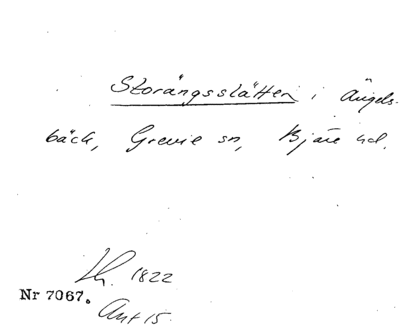 Storängsslätten i Ängels-
bäck, Grevie sn, Bjäre hd.
Lh. 1822
Nr 7067.
Ant 15.